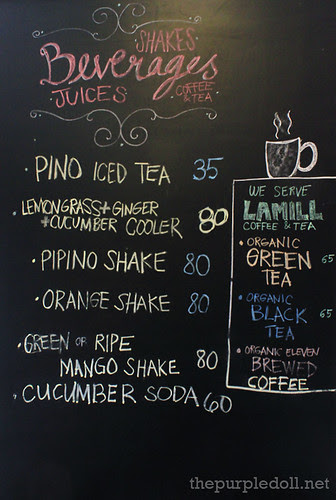 SHAKES
Beverages
JUICES
COFFEE
& TEA
• PINO ICED TEA 35
• LEMONGRASS + GINGER
+ CUCUMBER COOLER 80
• PIPINO SHAKE 80
• ORANGE SHAKE 80
• GREEN OR RIPE
MANGO SHAKE 80
• CUCUMBER SODA 60
WE SERVE
LAMILL
COFFEE & TEA
• ORGANIC
GREEN 65
TEA
• ORGANIC
BLACK 65
TEA
• ORGANIC ELEVEN
BREWED
COFFEE
thepurpledoll.net